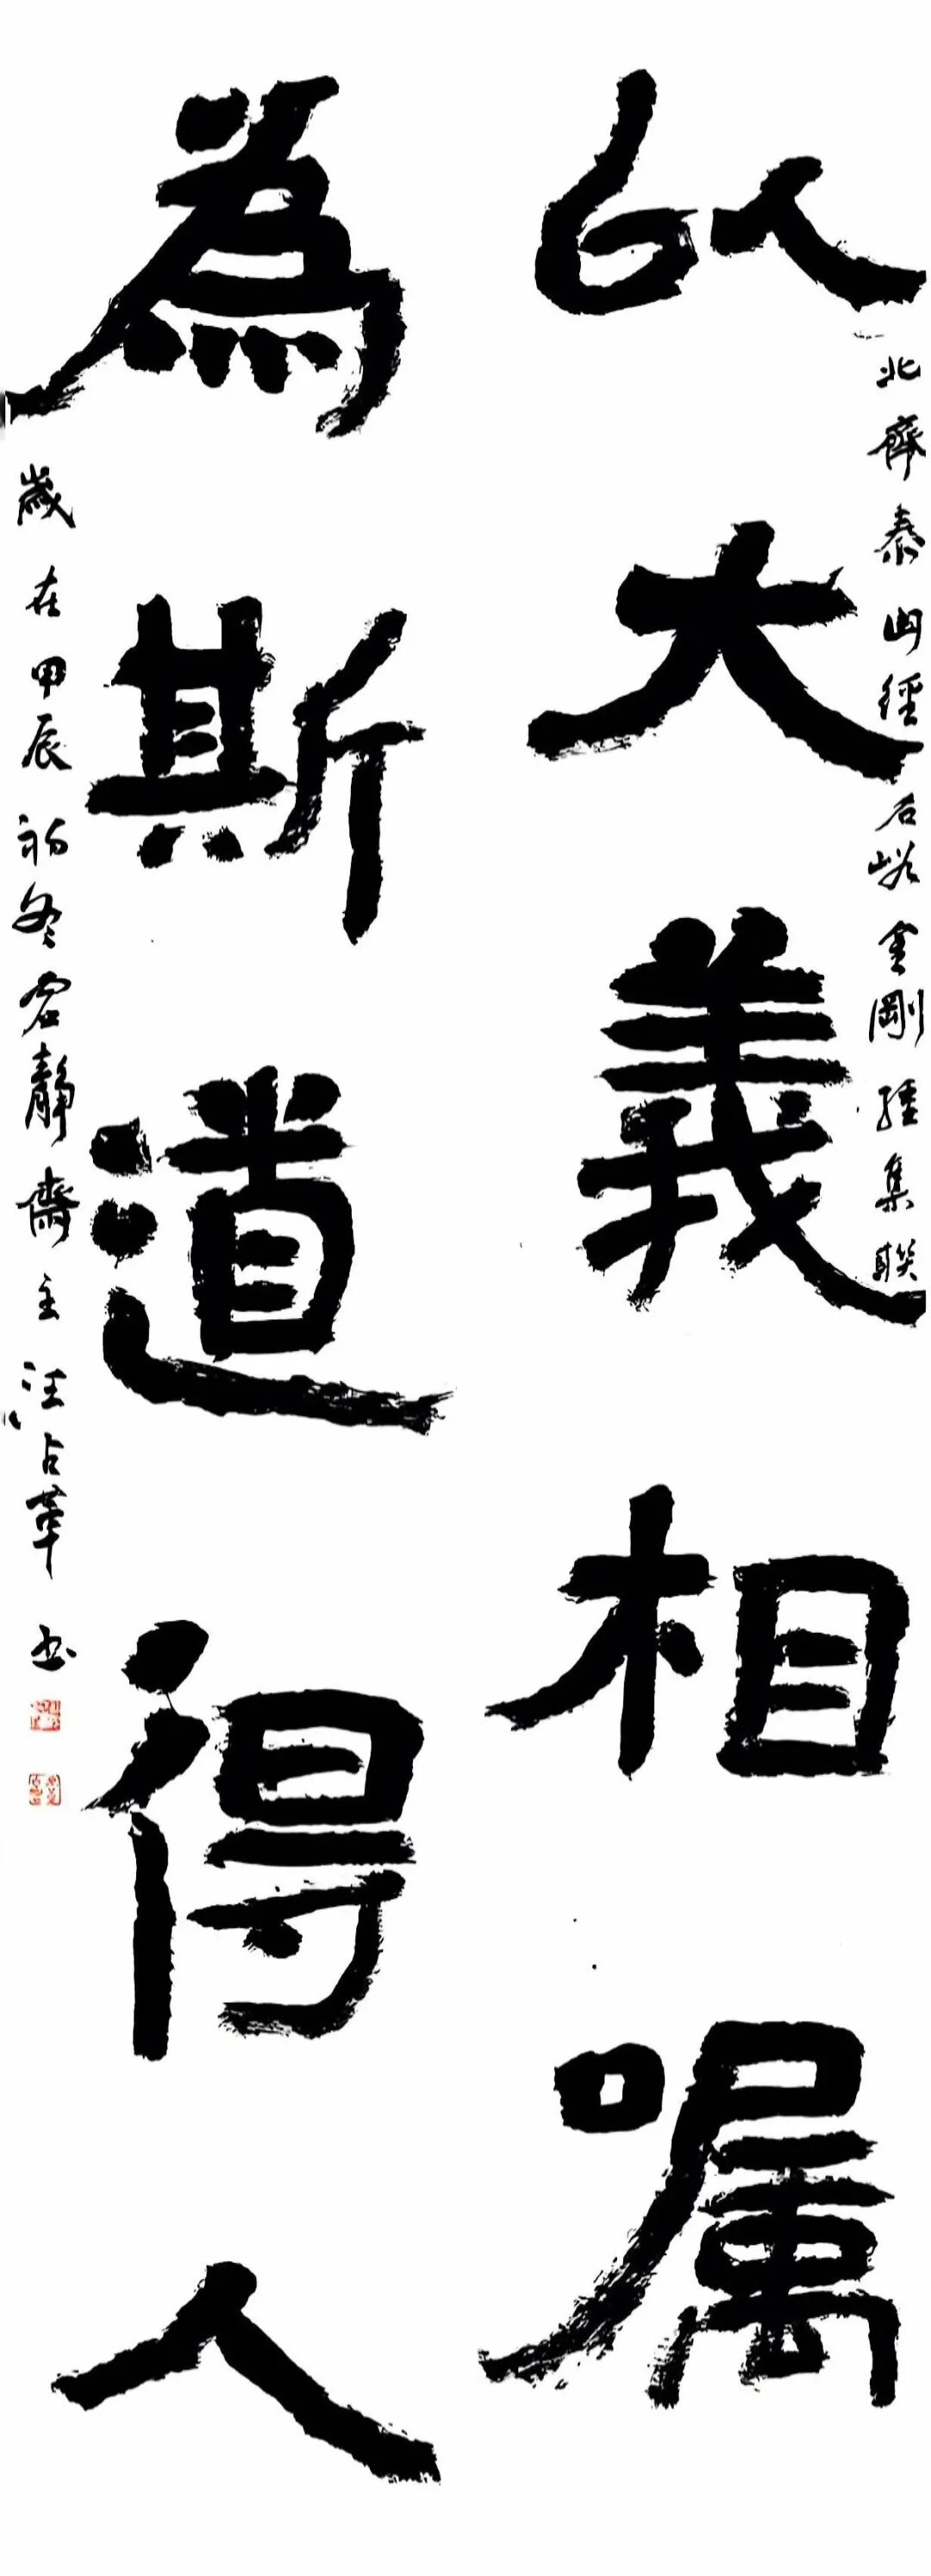 以大義相嘱
北齊泰山經石峪金剛經集聯
為斯道得人
歲在甲辰初冬宕靜齋主汪占革书